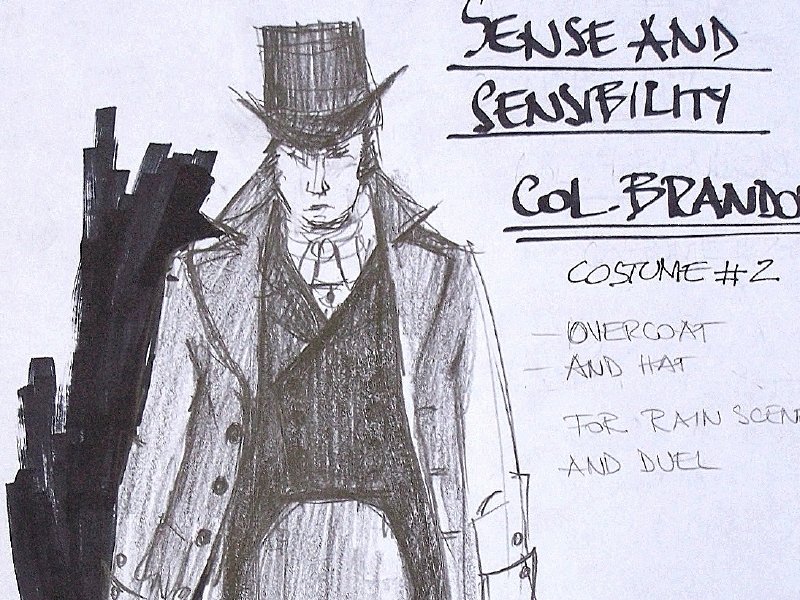 SENSE AND
SENSIBILITY
COL. BRANDO
COSTUME #2
- OVERCOAT
- AND HAT
FOR RAIN SCEN
AND DUEL